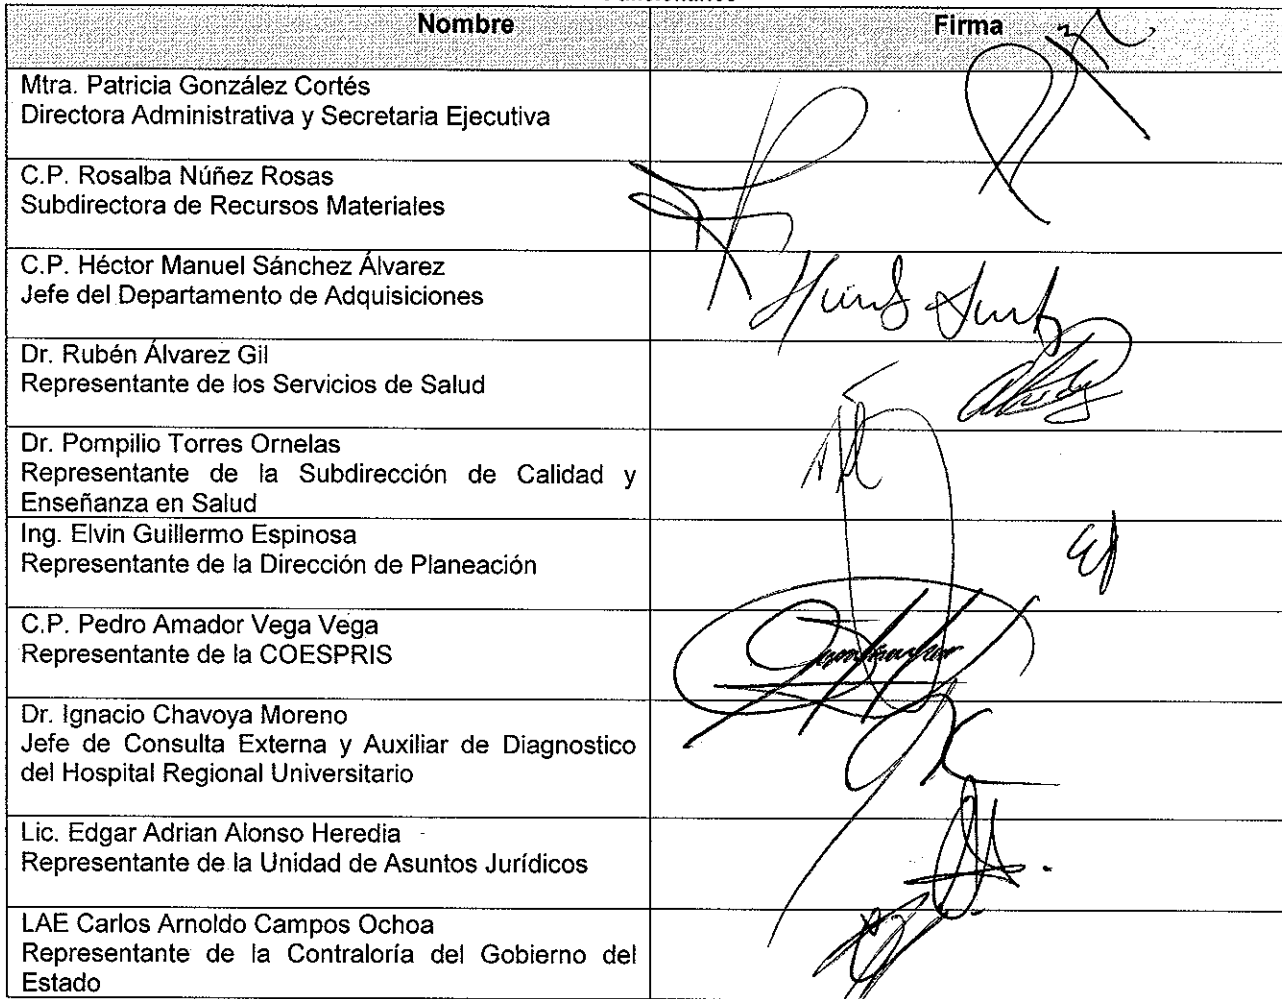 Nombre
Firma
Mtra. Patricia González Cortés
Directora Administrativa y Secretaria Ejecutiva
C.P. Rosalba Núñez Rosas
Subdirectora de Recursos Materiales
C.P. Héctor Manuel Sánchez Álvarez
Jefe del Departamento de Adquisiciones
Dr. Rubén Álvarez Gil
Representante de los Servicios de Salud
Dr. Pompilio Torres Ornelas
Representante de la Subdirección de Calidad y
Enseñanza en Salud
Ing. Elvin Guillermo Espinosa
Representante de la Dirección de Planeación
C.P. Pedro Amador Vega Vega
Representante de la COESPRIS
Dr. Ignacio Chavoya Moreno
Jefe de Consulta Externa y Auxiliar de Diagnostico
del Hospital Regional Universitario
Lic. Edgar Adrian Alonso Heredia
Representante de la Unidad de Asuntos Jurídicos
LAE Carlos Arnoldo Campos Ochoa
Representante de la Contraloría del Gobierno del
Estado